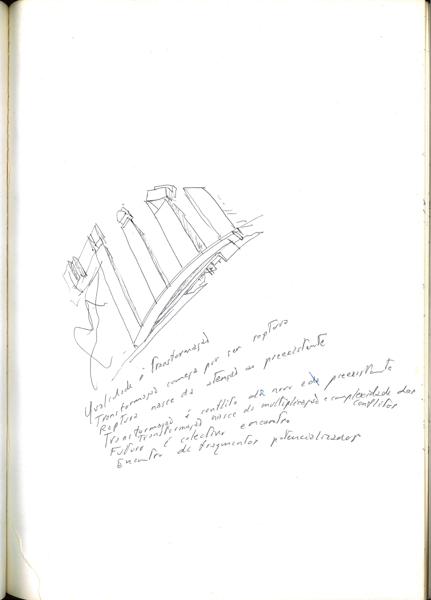 Qualidade é Transformação
Transformação começa por ser ruptura
Ruptura nasce da atenção ao preexistente
Transformação é conflito do novo e do preexistente
Transformação nasce da multiplicação e complexidade dos
conflitos
Futuro é colectivo encontro
Encontro de fragmentos potencializados